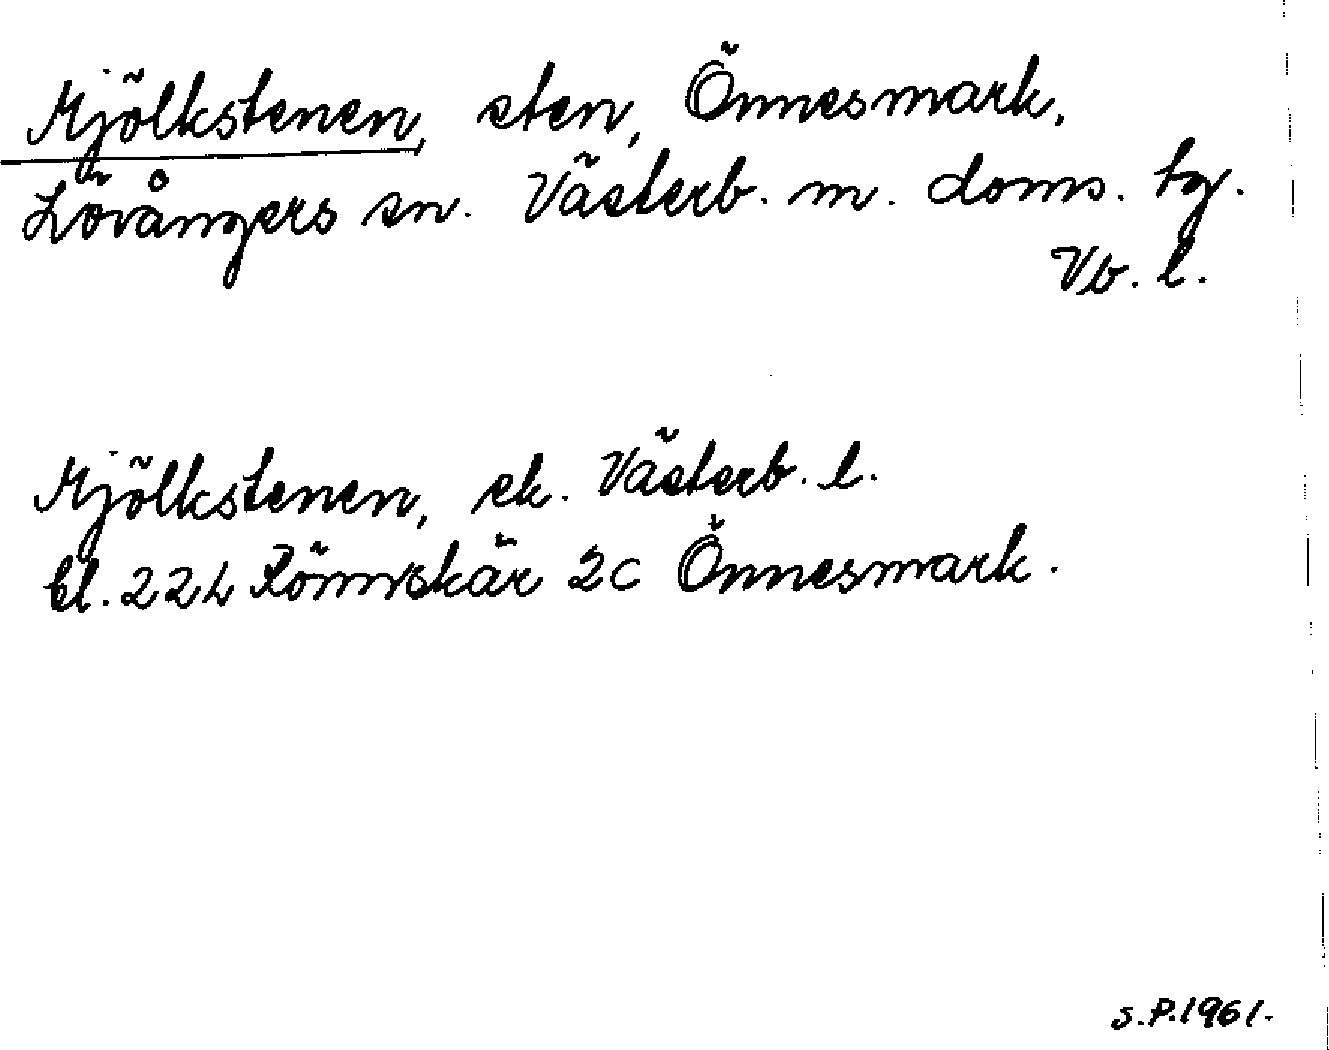 Mjölkstenen, sten, Önnesmark,
Lövångers sn. Västerb. m. doms. tg.
Vb. l.
Mjölkstenen, ek. Västerb. l.
bl. 224 Rönnskär 2c Önnesmark.
S.P.1961.